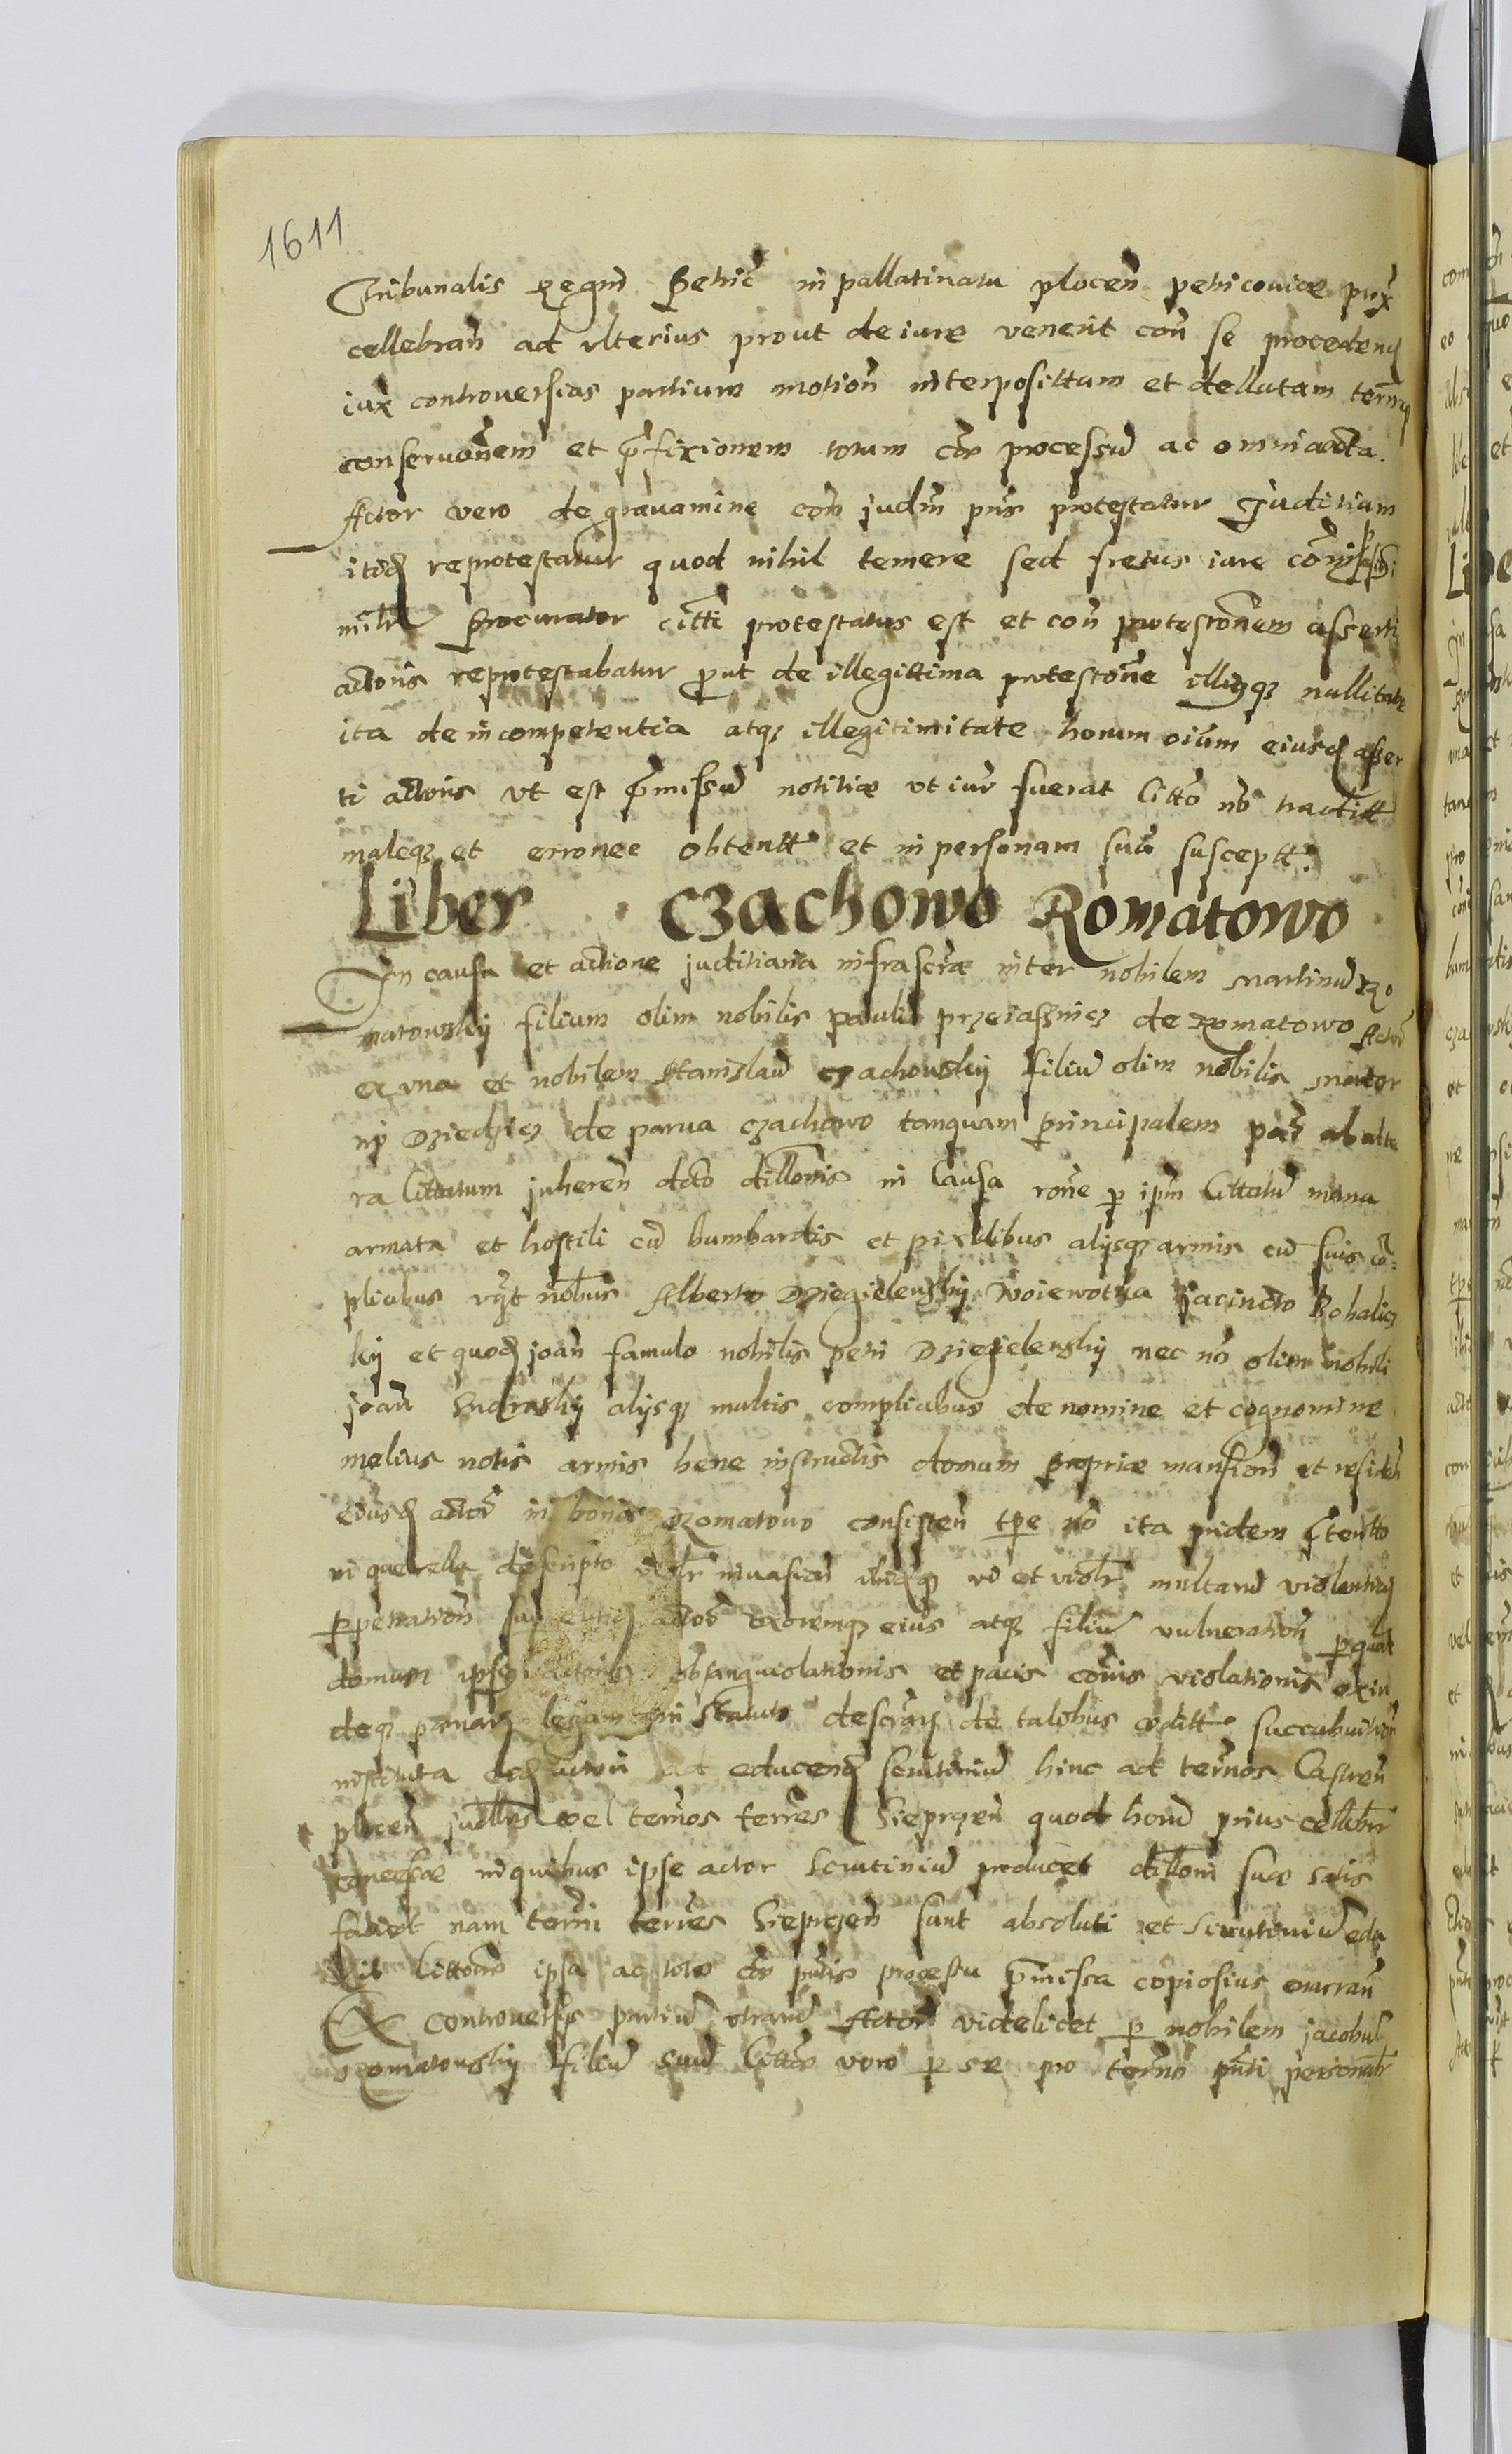 1611
Tribunalis Regni Petric in pallatinatu plocen petricoviae prix
cellebran ad ulterius prout de iure venerit con se procedend
iux controversias partium motion interposittam et dellatam termi
conservonem et pfixionem totum cor processu ac omnia acta.
Actor vero de gravamine con judm pns protestatur Juditium
itid reprotestatur quod nihil temere sed fretus iure comi
milr Procurator citti protestatus est et con protestonem asserti
actoris reprotestabatur prout de illegittima protestone illiusq nullitate
ita de incompetentia atq illegitimitate horum oium eiusd asser
ti actoris ut est pmissu notitiae ut iur fuerat Citto no traditt
maleq et erronee obtentt et in personam sua susceptt.
Liber Czachowo Romatowo
In causa et actione juditiaria infrascra inter nobilem Martinu Ro
matowskij filium olim nobilis pauli przeiasznicz de Romatowo Actore
ex una et nobilem Stanislau Czachowskij filiu olim nobilis
nij Dziedzicz de parva Czachowo tanquam principalem par ab alte
ra Cittatum inheren dcto dillonis in Causa rone p ipm Cittatu manu
armata et hostili cu bumbardis et pixidibus alijsq armis cu suis co=
plicibus vzt nobus Alberto Dziegielewskij Woiewotka Jacincto Rohalicz
kij et quod joan famulo nobilis petri Dziegielewskij nec no olim nobili
joan alijsq multis complicibus de nomine et cognomine
melius notis armis bene instructis domum propriae mansion et residen
eiusd actor in bonis Romatowo consisten tpe no ita pridem
in querella descripto violr invasion ibidq vi et violr multaru violentiaru
ppetration actor uxoremq eius atq filiu vulneration
domum ipsius actoris obsanguiolationis et pacis cois violationis exin
deq penarum legum in statuto descrarum de talibus editt succubuition
instituta eid actori ad educend scrutiniu hinc ad terminos Castren
plocen judlles vel terminos terres Sieprzen quod horu prius cellebr
concessae in quibus ipse actor scrutiniu producet dilloni suae satis
faciet nam termi terres Sieprzen sunt absoluti et scrutiniu edu
xit Cittone ipsa ac toto cor putis processu pmissa copiosius enarran
Ex controversijs partiu utraru Actor videlicet p nobilem jacobu
Romatowskij filiu suu Cittor vero p se pro termo puti personalr